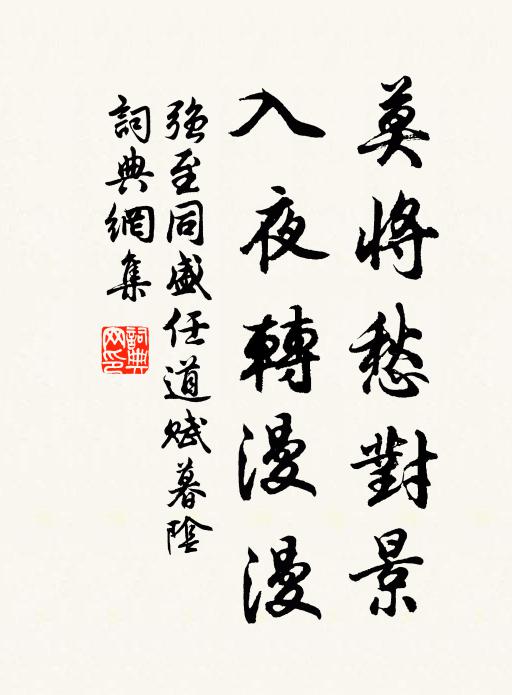 莫將愁對景
入夜轉漫漫
強至同盛任道賦暮陰
詞典網集
詞典网印